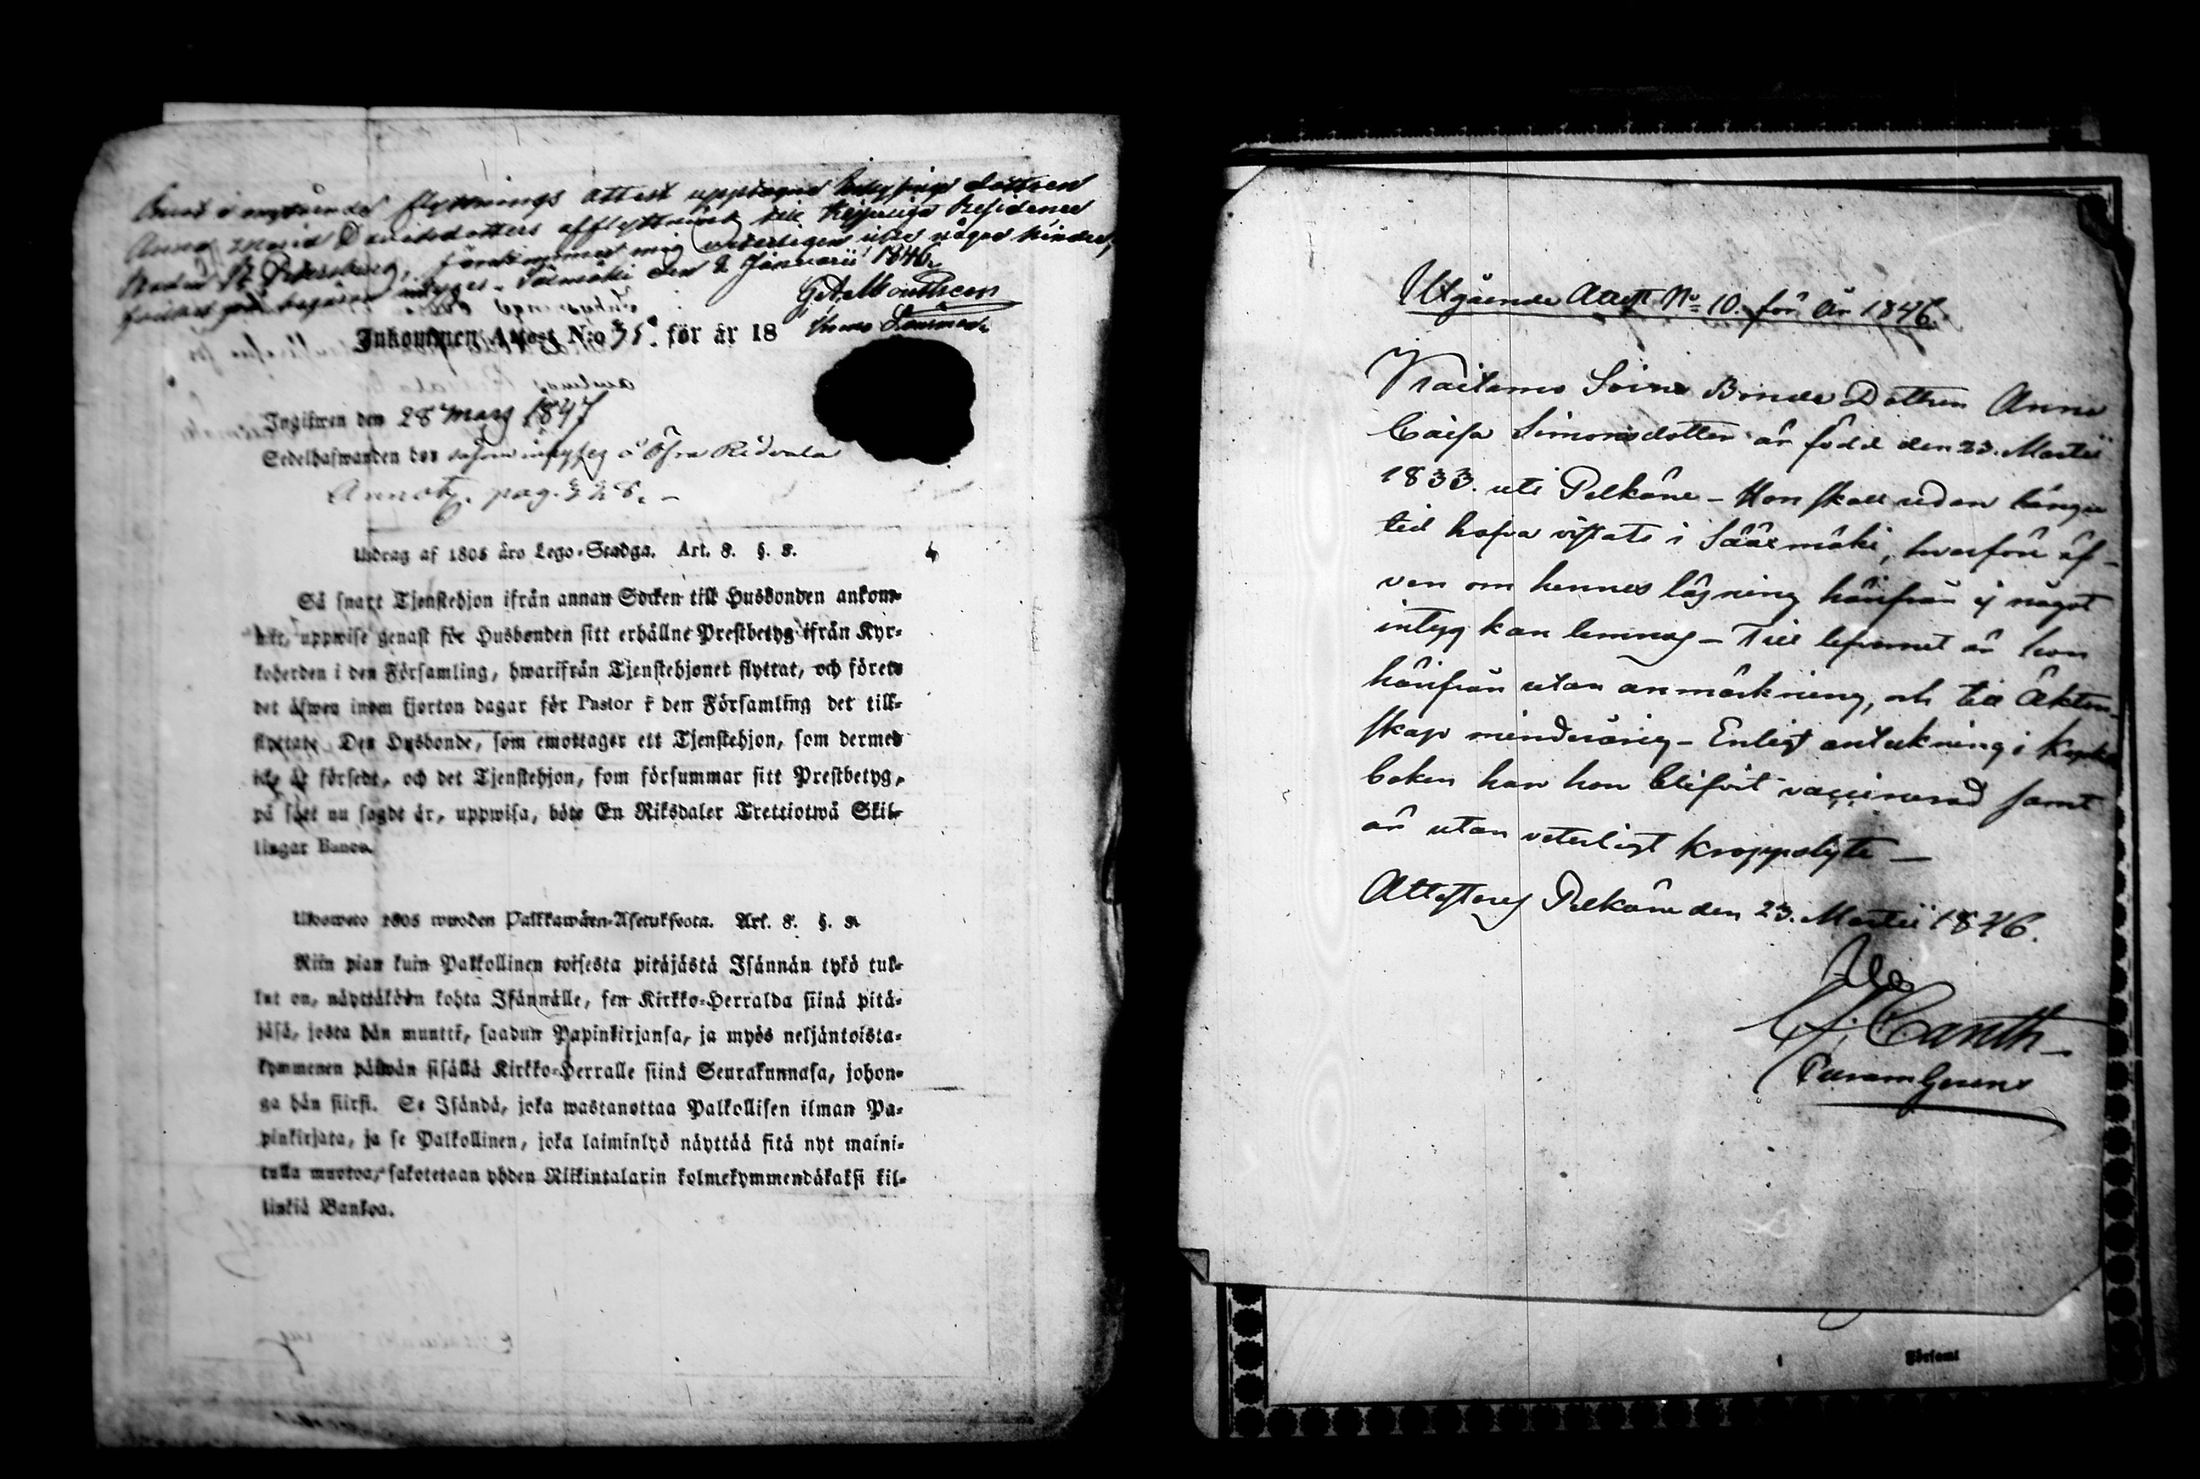 flyttnings attest
Anna Maria Davidsdotters afflyttning till Kejserliga Residence
Staden St Petersburg, förekommer mig veterligen icke något hinder,
intygas. Sääxmäki den 2 Januarii 1846.
Inkommen Attest N:o 31. för år 18
Ingifwen den 28 Mars 1847
Sedelhafwanden bor såsom inhyses å Öfre Ridvala
Annot. pag. 328. –
Utdrag af 1805 års Lego-Stadga. Art. 8. §. 8.
Så snart Tjenstehjon ifrån annan Socken till Husbonden ankom-
mit, uppwise genast för Husbonden sitt erhållne Prestbetyg ifrån Kyr-
koherden i den Församling, hwarifrån Tjenstehjonet flyttat, och förete
det äfwen inom fjorton dagar för Pastor i den Församling det till-
flyttat. Den Husbonde, som emottager ett Tjenstehjon, som dermed
icke är försedt, och det Tjenstehjon, som försummar sitt Prestbetyg,
på sätt nu sagdt är, uppwisa, böte En Riksdaler Trettiotwå Skil-
lingar Banco.
Ulosweto 1805 wuoden Palkkawäen-Asetuksesta. Art. 8. §. 8.
Niin pian kuin Palkollinen toisesta pitäjästä Isännän tykö tul-
lut on, näyttäköön kohta Isännälle, sen Kirkko-Herralda siinä pitä-
jäsä, josta hän muutti, saadun Papinkirjansa, ja myös neljäntoista-
kymmenen päiwän sisällä Kirkko-Herralle siinä Seurakunnasa, johon-
ga hän siirsi. Se Isändä, joka wastanottaa Palkollisen ilman Pa-
pinkirjata, ja se Palkollinen, joka laiminlyö näyttää sitä nyt maini-
tulla muotoa, sakotetaan yhden Riikintalarin kolmekymmendäkaksi kil-
linkiä Bankoa.
Utgående Attest No 10. för år 1846.
Bonde Dottren Anna
Caisa Simonsdotter är född den 23. Martii
1833. uti Pelkäne – Hon skall redan längre
tid hafva vistats i Sääxmäki, hvarföre äf-
ven om hennes läsning härifrån ej något
intyg kan lemnas – Till lefvernet är hon
härifrån utan anmärkning, och till Äkten-
skap minderårig – Enligt anteckning i Kyrko
boken har hon blifvit vaccinerad samt
är utan veterligt kroppslyte –
Attesteras Pelkäne den 23. Martii 1846.
C. J. Canth
Församl